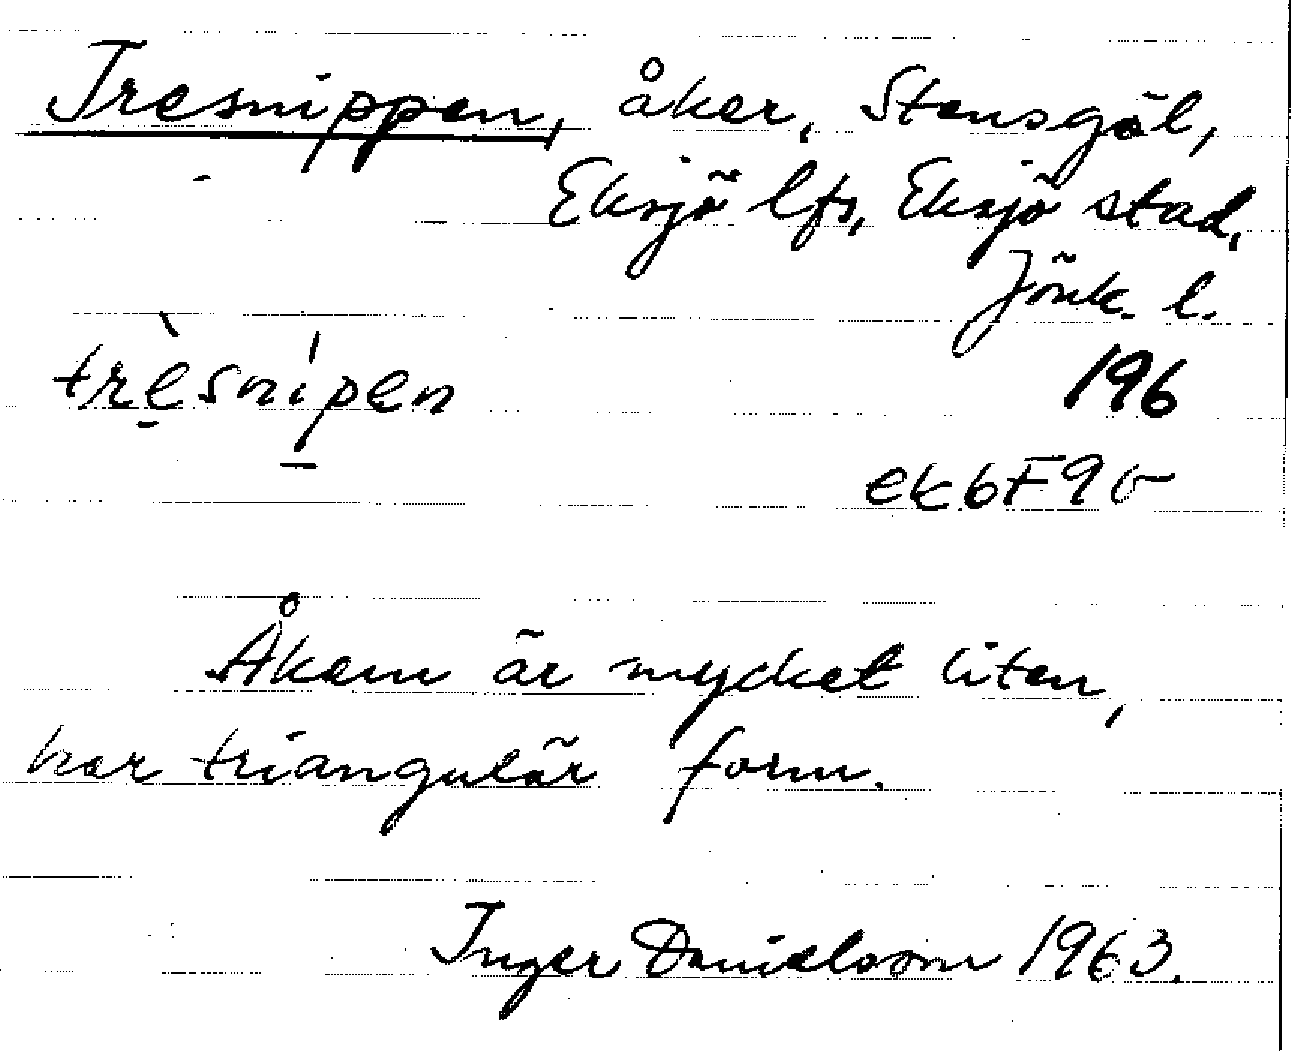 Tresnippen, åker, Stensgöl,
Eksjö lfs, Eksjö stad,
Jönk. l.
trè̱sní̱pen 196
ek 6F9o
Åkern är mycket liten,
har triangulär form.
Inger Danielsson 1963.